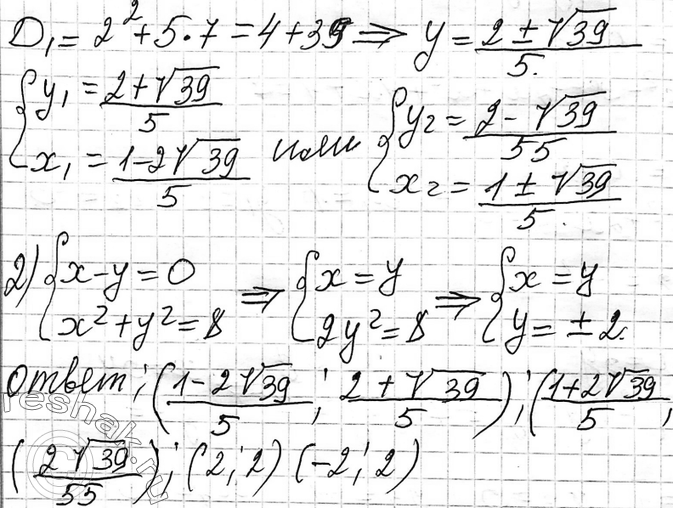 D₁ = 2² + 5·7 = 4 + 35 ⇒ y = (2 ± √39)/5.
{ y₁ = (2 + √39)/5
{ x₁ = (1 - 2√39)/5 или { y₂ = (2 - √39)/55
{ x₂ = (1 ± √39)/5.
2) { x - y = 0 ⇒ { x = y ⇒ { x = y
{ x² + y² = 8 { 2y² = 8 { y = ± 2.
Ответ: ((1 - 2√39)/5; (2 + √39)/5); ((1 + 2√39)/5;
((2√39)/55); (2; 2) (-2; 2)
reshak.ru